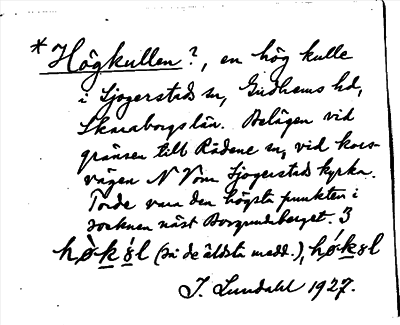 *Högkullen?, en hög kulle
i Sjogerstads sn, Gudhems hd,
Skaraborgs län. Belägen vid
gränsen till Rådene sn, vid kors-
vägen N Vom Sjogerstads kyrka.
Torde vara den högsta punkten i
socknen näst Borgundaberget. 3
(så de äldsta medd.),
J. Lundahl 1927.